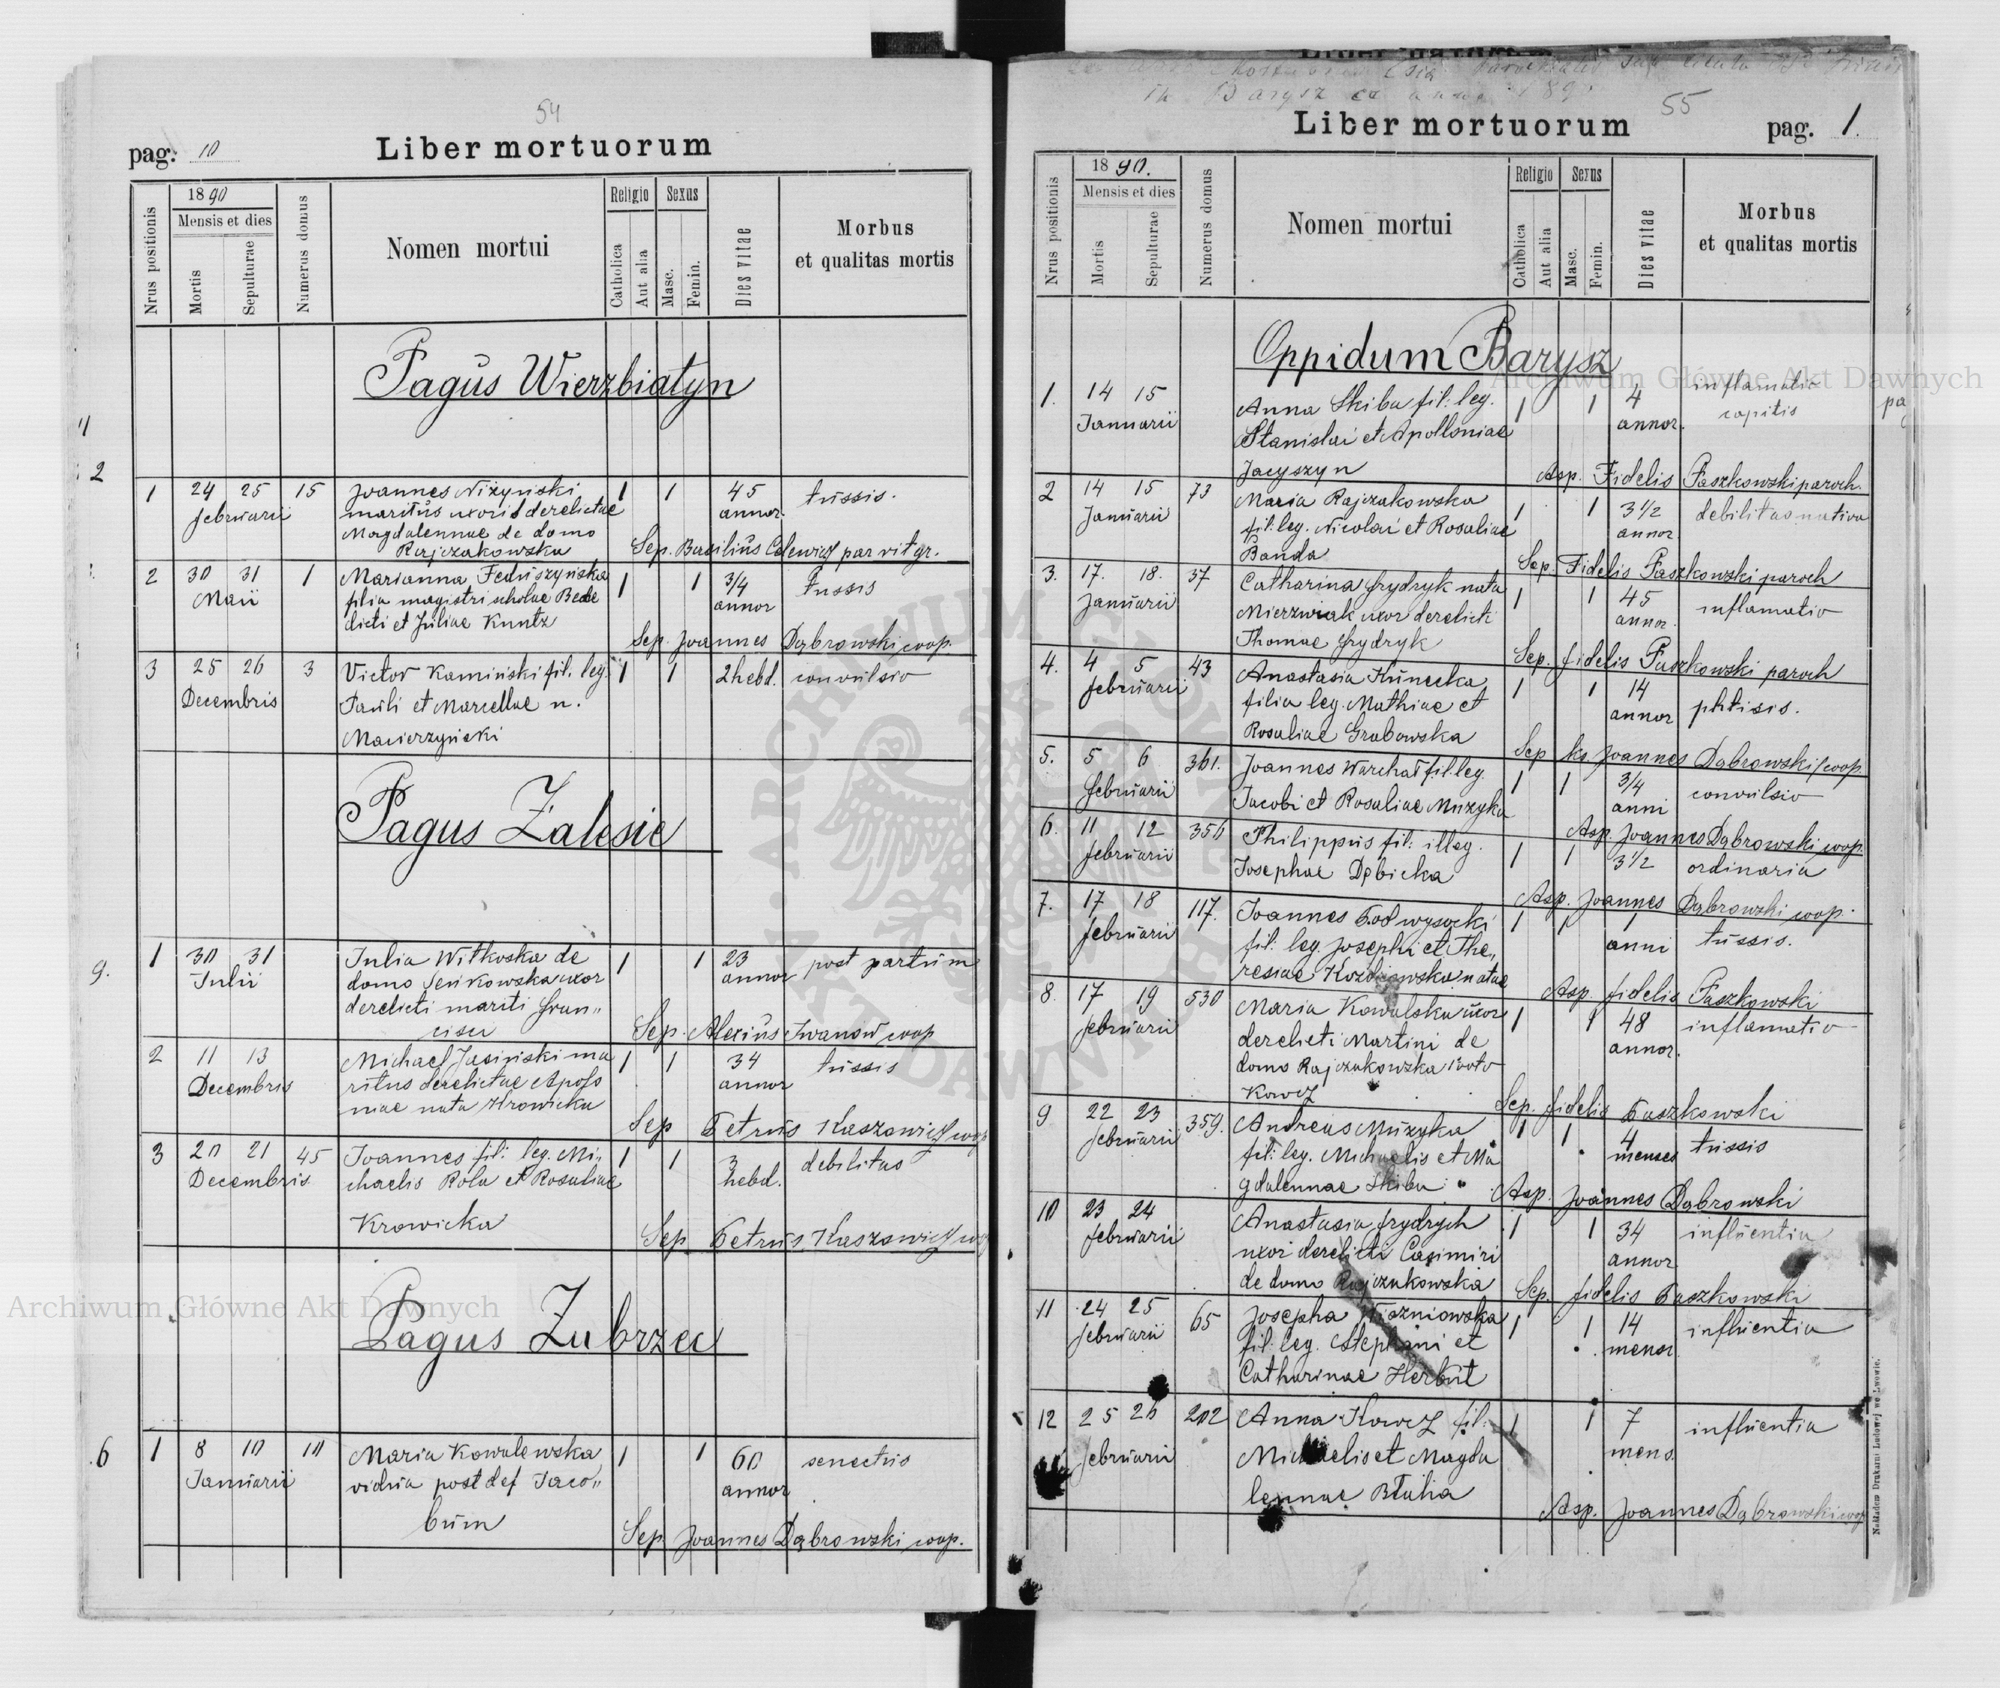 54
pag. 10
Liber mortuorum
Nrus positionis
1890
Mensis et dies
Mortis
Sepulturae
Numerus domus
Nomen mortui
Religio
Catholica
Aut alia
Sexus
Masc.
Femin.
Dies vitae
Morbus
et qualitas mortis
Pagus Wierzbiatyn
11
2
1 24 25 15 Joannes Niżyński 1 1 45 tussis.
februarii maritus uxoris derelictae annor.
Magdalennae de domo
Rajczakowska Sep. Basilius Celewicz par rit gr.
2 30 31 1 Marianna Feduszyńska 1 1 3/4 tussis
Maii filia magistri scholae Bene annor
dicti et Juliae Kuntz
Sep. Joannes Dąbrowski coop.
3 25 26 3 Victor Kamiński fil. leg. 1 1 2 hebd. convulsio
Decembris Pauli et Marcellae n.
Macierzyński
Pagus Zalesie
9.
1 30 31 Julia Witkoska de 1 1 23 post partum
Julii domo Seńkowska uxor annor
derelicti mariti Fran„
cisci Sep. Alexius Iwanow coop
2 11 13 Michael Jasiński ma 1 1 34 tussis
Decembris ritus derelictae Apollo annor
niae nata Krowicka
Sep Petrus Kaszowicz coop
3 20 21 45 Joannes fil: leg. Mi„ 1 1 3 debilitas
Decembris chaelis Rola et Rosaliae hebd.
Krowicka
Sep Petrus Kaszowicz
Pagus Zubrzec
6
1 8 10 10 Maria Kowalewska 1 1 60 senectus
Januarii vidua post def Jaco„ annor
bum
Sep Joannes Dąbrowski coop.
Barysz
55
Liber mortuorum
pag. 1.
Nrus positionis
1890.
Mensis et dies
Mortis
Sepulturae
Numerus domus
Nomen mortui
Religio
Catholica
Aut alia
Sexus
Masc.
Femin.
Dies vitae
Morbus
et qualitas mortis
Oppidum Barysz
1. 14 15 Anna Skiba fil: leg. 1 1 4 inflamatio
Januarii Stanislai et Apolloniae annor. capitis
Jacyszyn Asp. Fidelis Paszkowski paroch.
2 14 15 73 Maria Rajczakowska 1 1 3 1/2 debilitas nativa
Januarii fil: leg. Nicolai et Rosaliae annor.
Banda Sep. Fidelis Paszkowski paroch
3. 17. 18. 37 Catharina Frydryk nata 1 1 45 inflamatio
Januarii Mierzwiak uxor derelicti annor.
Thomae Frydryk Sep. Fidelis Paszkowski paroch
4. 4 5 43 Anastasia Kunecka 1 1 14 phtisis.
februarii filia leg. Mathiae et annor
Rosaliae Grabowska Sep ks Joannes Dąbrowski coop.
5. 5 6 361. Joannes Warchał fil. leg. 1 1 3/4 convulsio
februarii Jacobi et Rosaliae Muzyka anni
Asp. Joannes Dąbrowski coop.
6. 11 12 356 Philippus fil: illeg. 1 1 3 1/2 ordinaria
februarii Josephae Dębicka
Asp. Joannes Dąbrowski coop.
7. 17 18 117. Joannes Podwysocki 1 1 1 tussis.
februarii fil: leg. Josephi et The„ anni
resiae natae
Asp. fidelis Paszkowski
8. 17 19 530 Maria Kowalska uxor 1 1 48 inflamatio
februarii derelicti Martini de annor.
domo Rajczakowska 1voto
Kowcz Sep. fidelis Paszkowski
9 22 23 359. Andreas Muzyka 1 1 4 tussis
februarii fil: leg. Michaelis et Ma menses
gdalennae Skiba Asp. Joannes Dąbrowski
10 23 24 Anastasia Frydrych 1 1 34 influentia
februarii uxor derelicti Casimiri annor
de domo Rajczakowska Sep. fidelis Paszkowski
11 24 25 65 Josepha Wiszniowska 1 1 14 influentia
februarii fil: leg. Stephani et mensr.
Catharinae Herbut
12 25 26 202 Anna Kowcz fil: 1 1 7 influentia
februarii Michaelis et Magda mens.
lennae Btaha
Asp. Joannes Dąbrowski coop
Nakładem Drukarni Ludowej we Lwowie.
Archiwum Główne Akt Dawnych
Archiwum Główne Akt Dawnych
ARCHIWUM GŁÓWNE AKT DAWNYCH